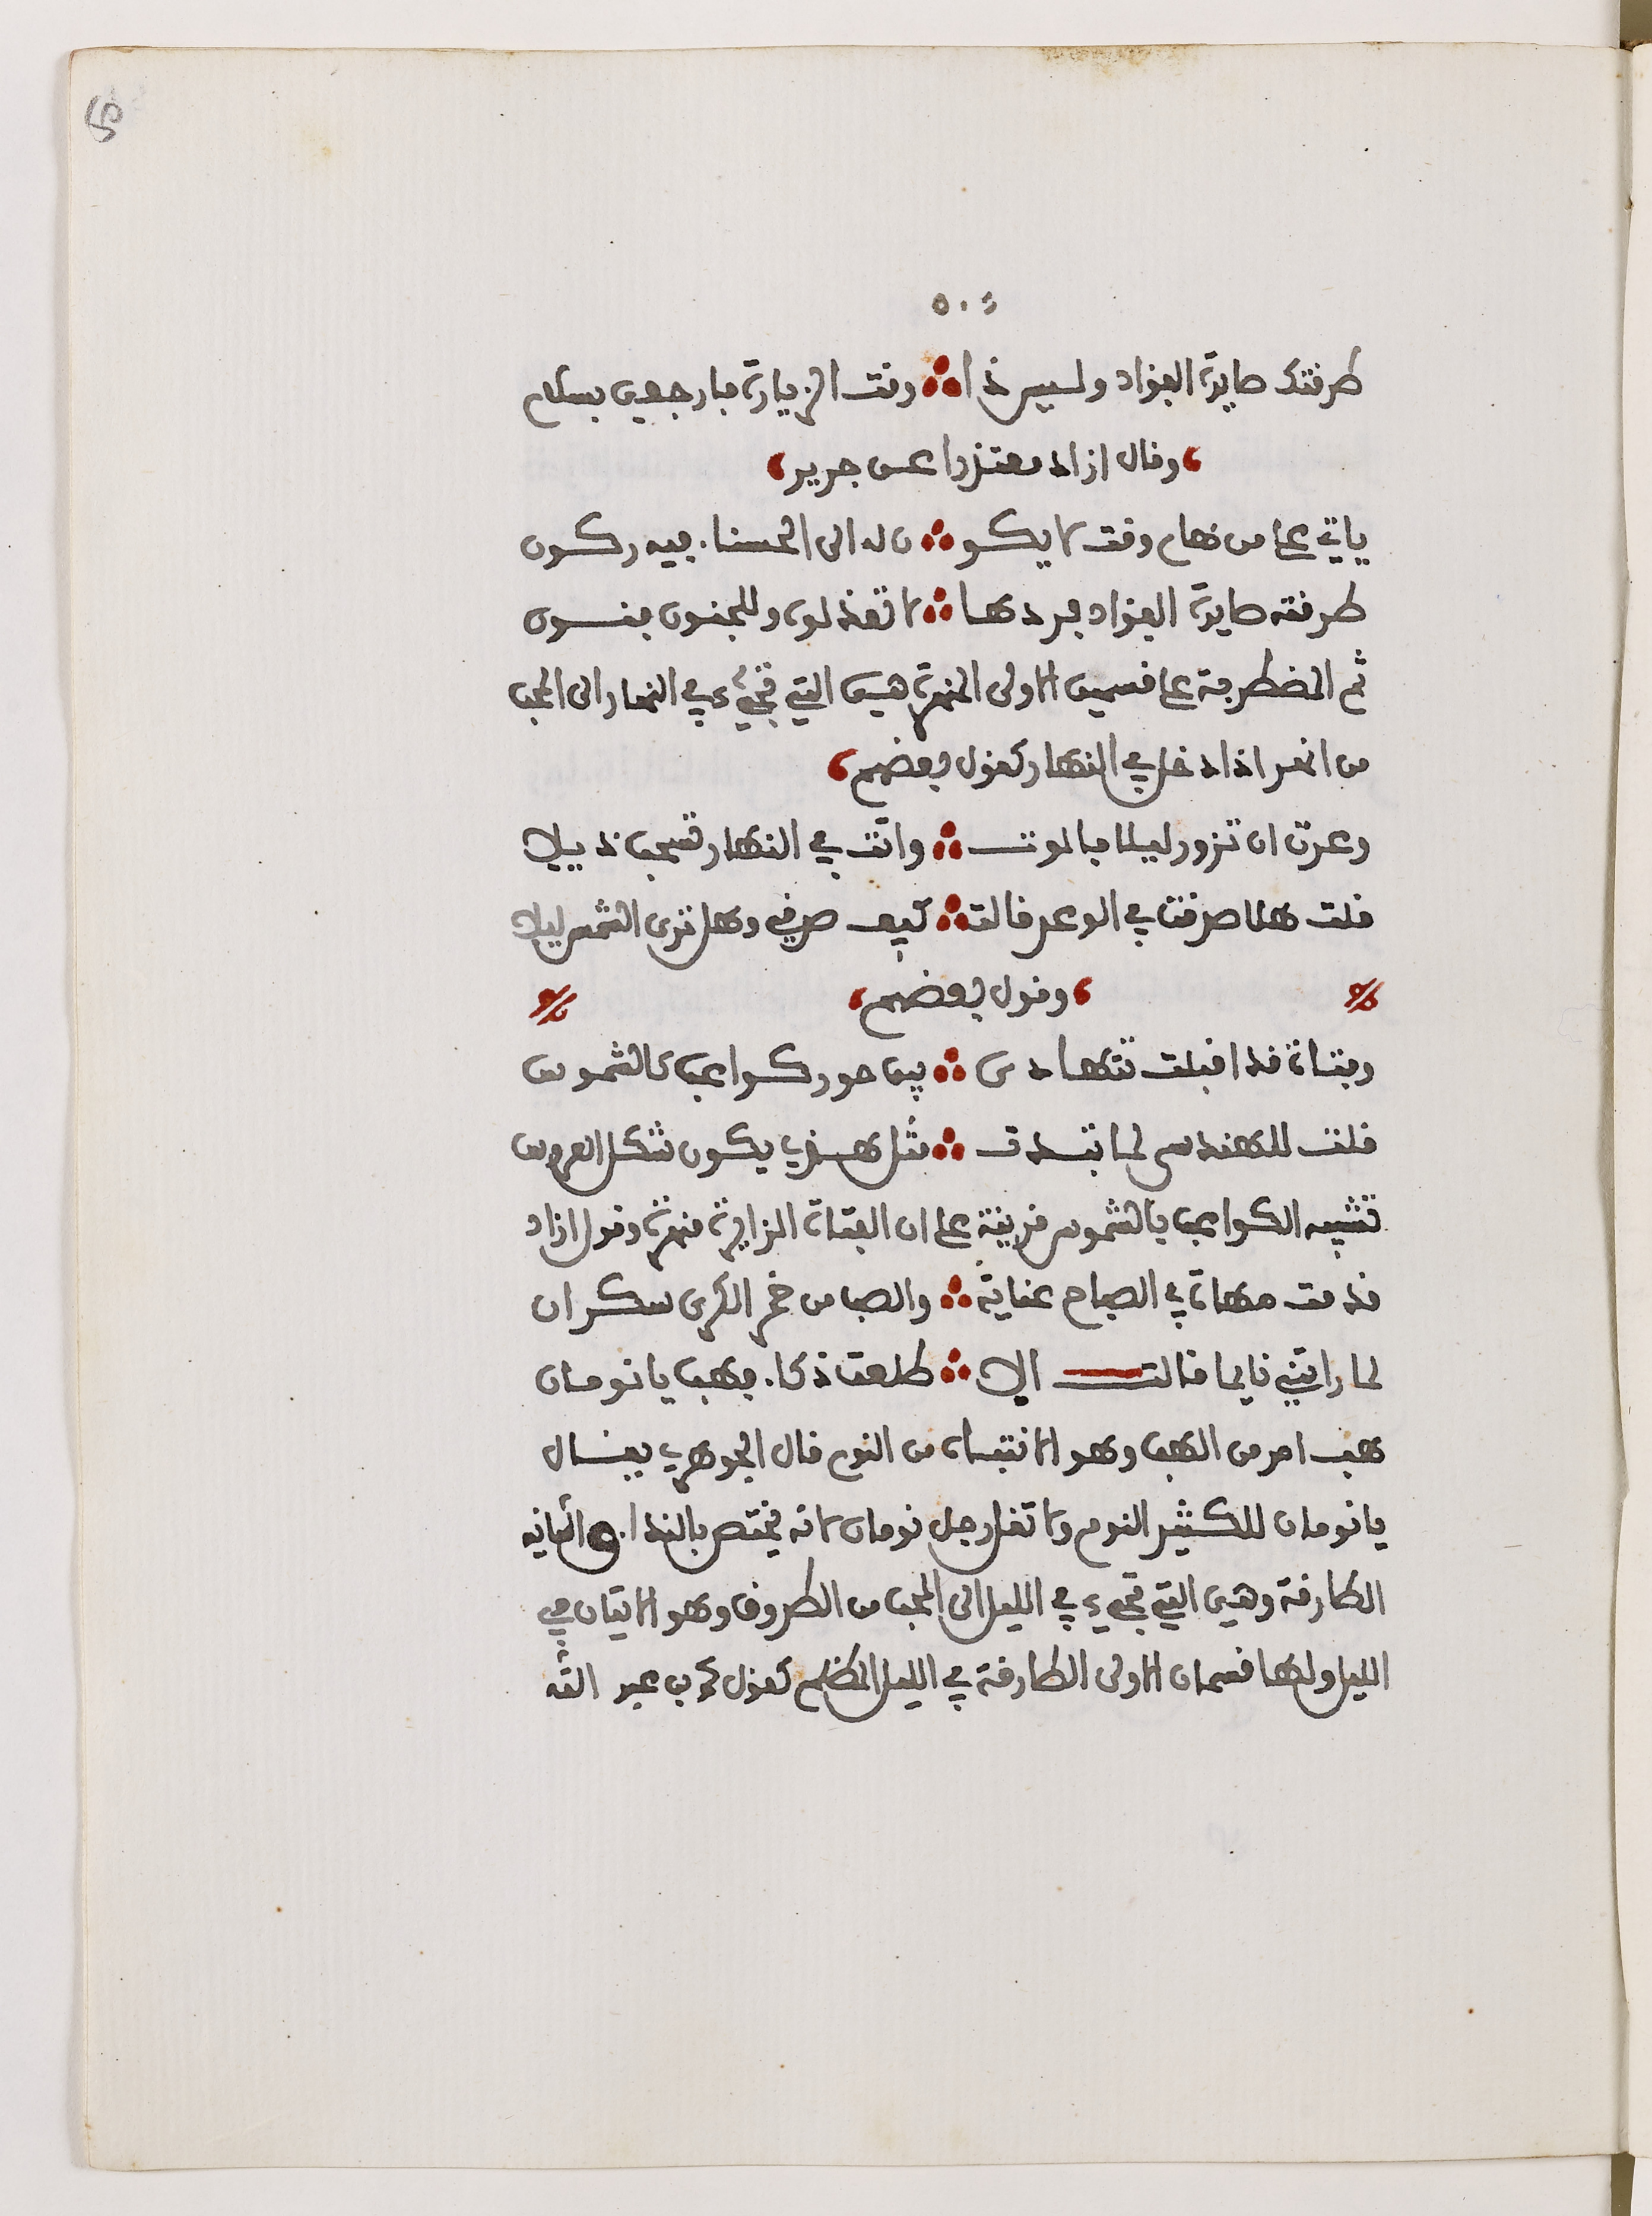 ٥٠٤
طرقتك صايدة الفؤاد وليس ذا ∴ وقت الزيارة فارجعي بسلام
،وقال ازاد معتذرا عن جرير،
ياتي على من هام وقت لا يكو ∴ ن له الى الحسنا. فيه ركون
طرقته صايدة الفؤاد فردها ∴ لا تعذلوه وللجنون فنون
ثم المضطرحة على قسمين الاولى المنهرة هي التي تجيء في النهار الى المحب
من انهر اذا دخل في النهار كقول بعضهم،
وعدت ان تزور ليلا فالوت ∴ واتت في النهار تسحب ذيلا
قلت هلا صدقت في الوعد قالت ∴ كيف صدقي وهل ترى الشمس ليلا
،وقول بعضهم،
وفتاة قد اقبلت تتهادى ∴ بين حور كواعب كالشموس
قلت للهندسي لما تبدت ∴ مثل هذي يكون شكل العروس
تشبيه الكواعب بالشموس قرينة على ان الفتاة الزايرة منهرة وقول ازاد
قدمت مهاة في الصباح عناية ∴ والصب من خمر الكرى سكران
لما راتني نايما قالت الا ∴ طلعت ذكا. فهب يا نومان
هب امر من الهب وهو الانتباه من النوم قال الجوهري يقال
يا نومان للكثير النوم ولا تقل رجل نومان لانه يختص بالندا. والثانيه
الطارقة وهي التي تجيء في الليل الى المحب من الطروق وهو الاتيان في
الليل ولها قسمان الاولى الطارقة في الليل المظلم كقول محمد بن عبد الله